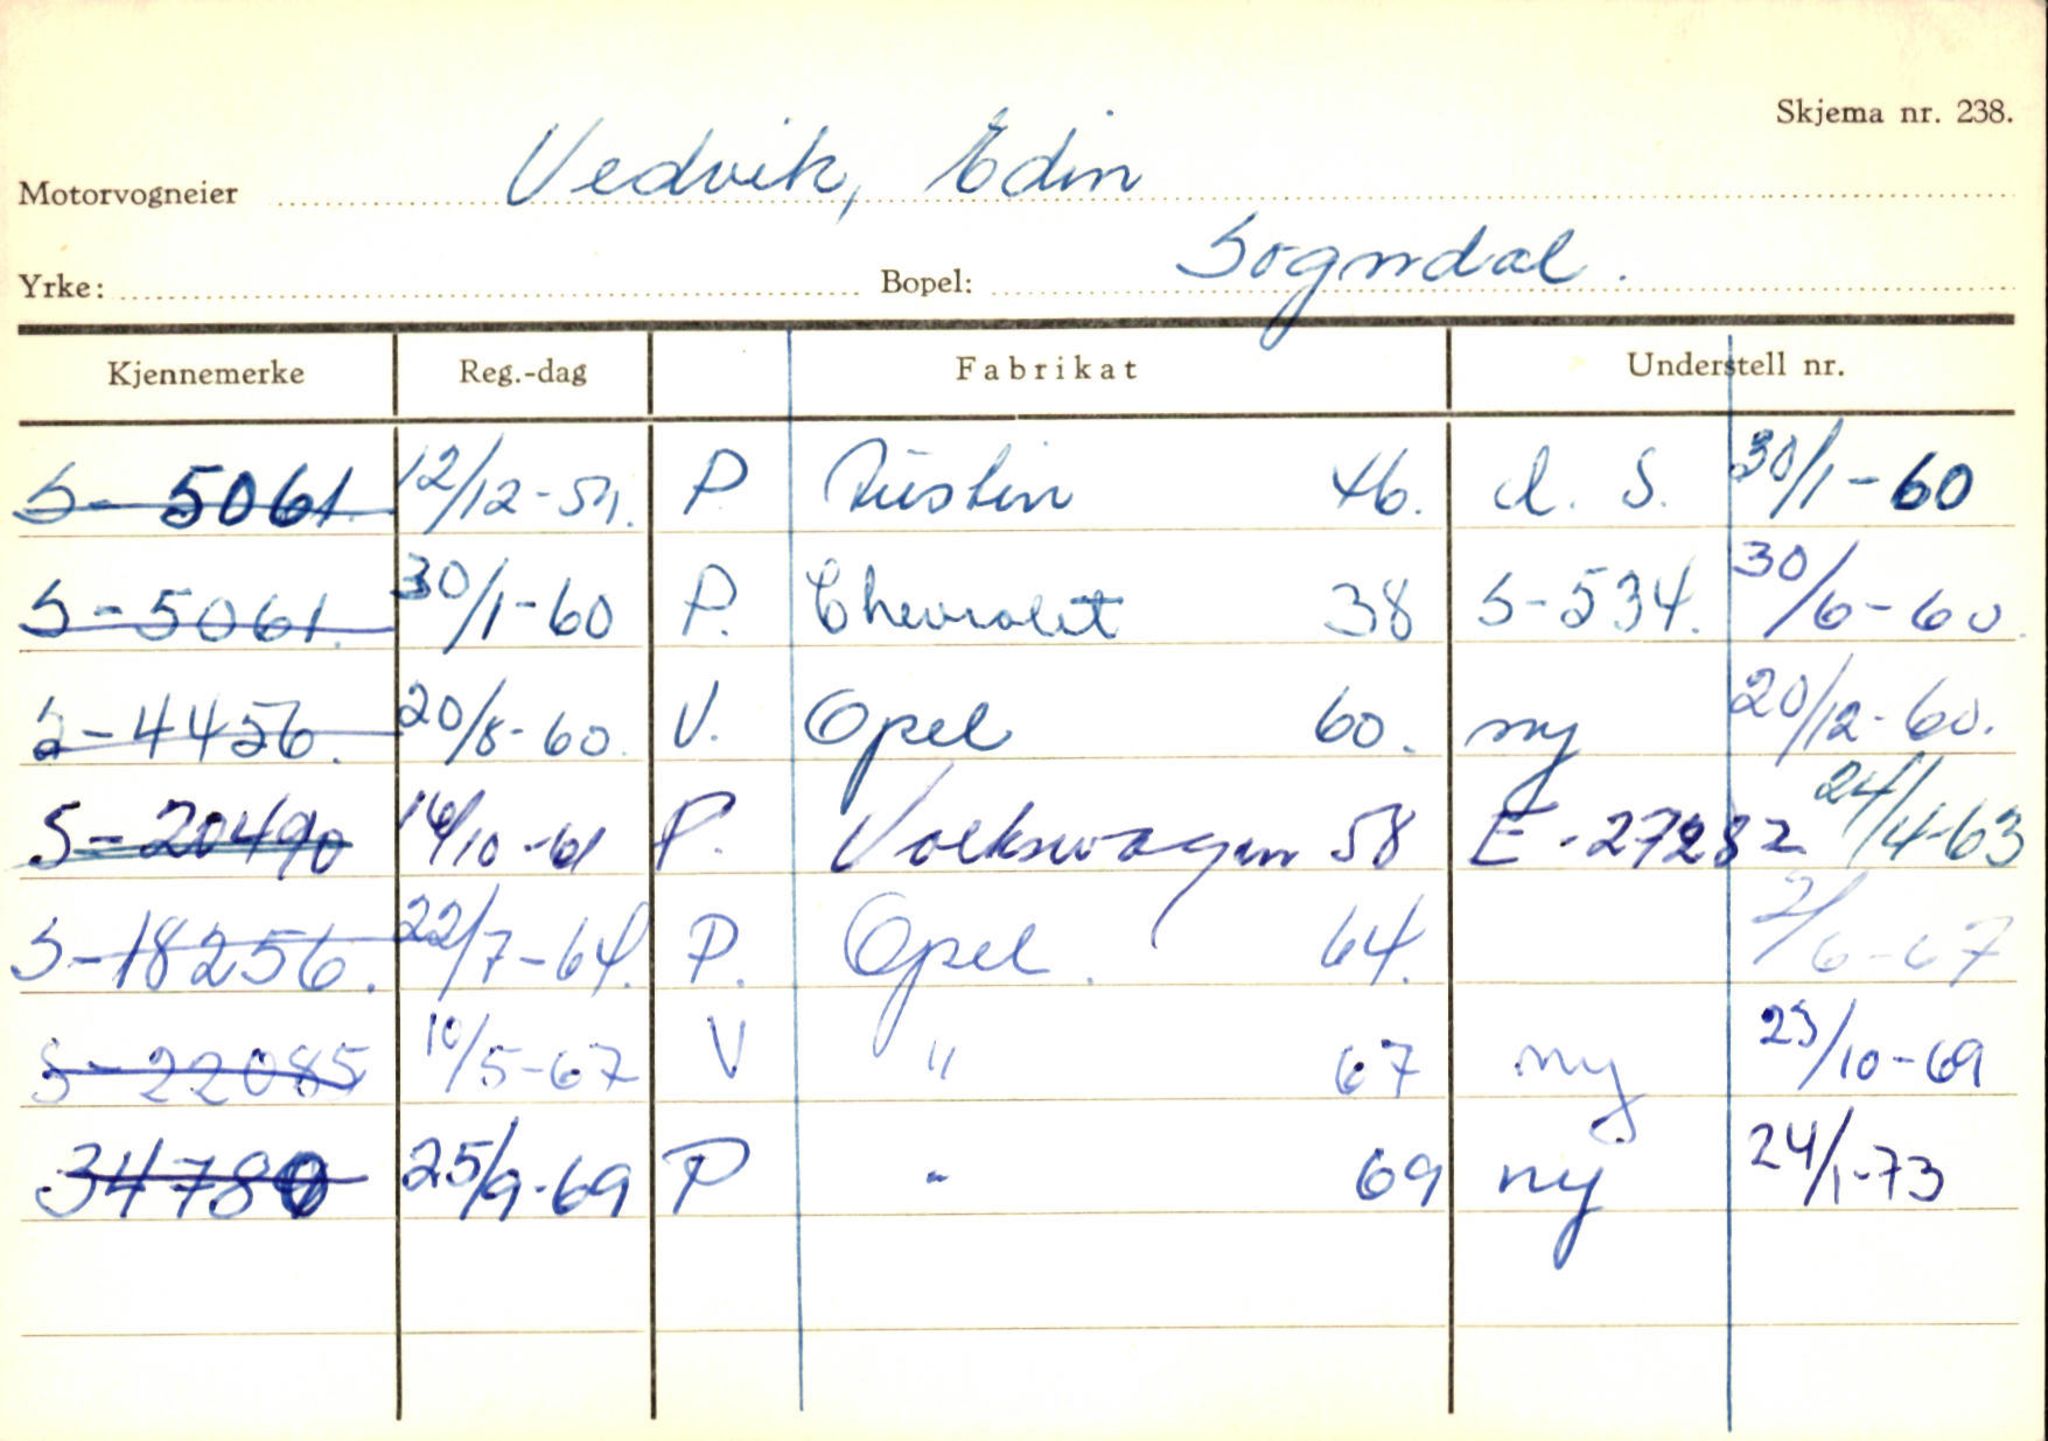 Skjema nr. 238.
Motorvogneier Vedvik, Edin
Yrke: Bopel: Sogndal.
Kjennemerke Reg.-dag Fabrikat Understell nr.
S-5061 12/12-59. P Austin 46. d. S. 30/1-60
S-5061. 30/1-60 P. Chevrolet 38 S-534. 30/6-60.
S-4456. 20/8-60. V. Opel 60. ny 20/12-60.
S-20490 16/10-61 P. Volkswagen 58 E-27282 24/4-63
S-18256. 22/7-64. P. Opel. 64. 2/6-67
S-22085 10/5-67 V " 67 ny 23/10-69
34780 25/9-69 P " 69 ny 24/1-73